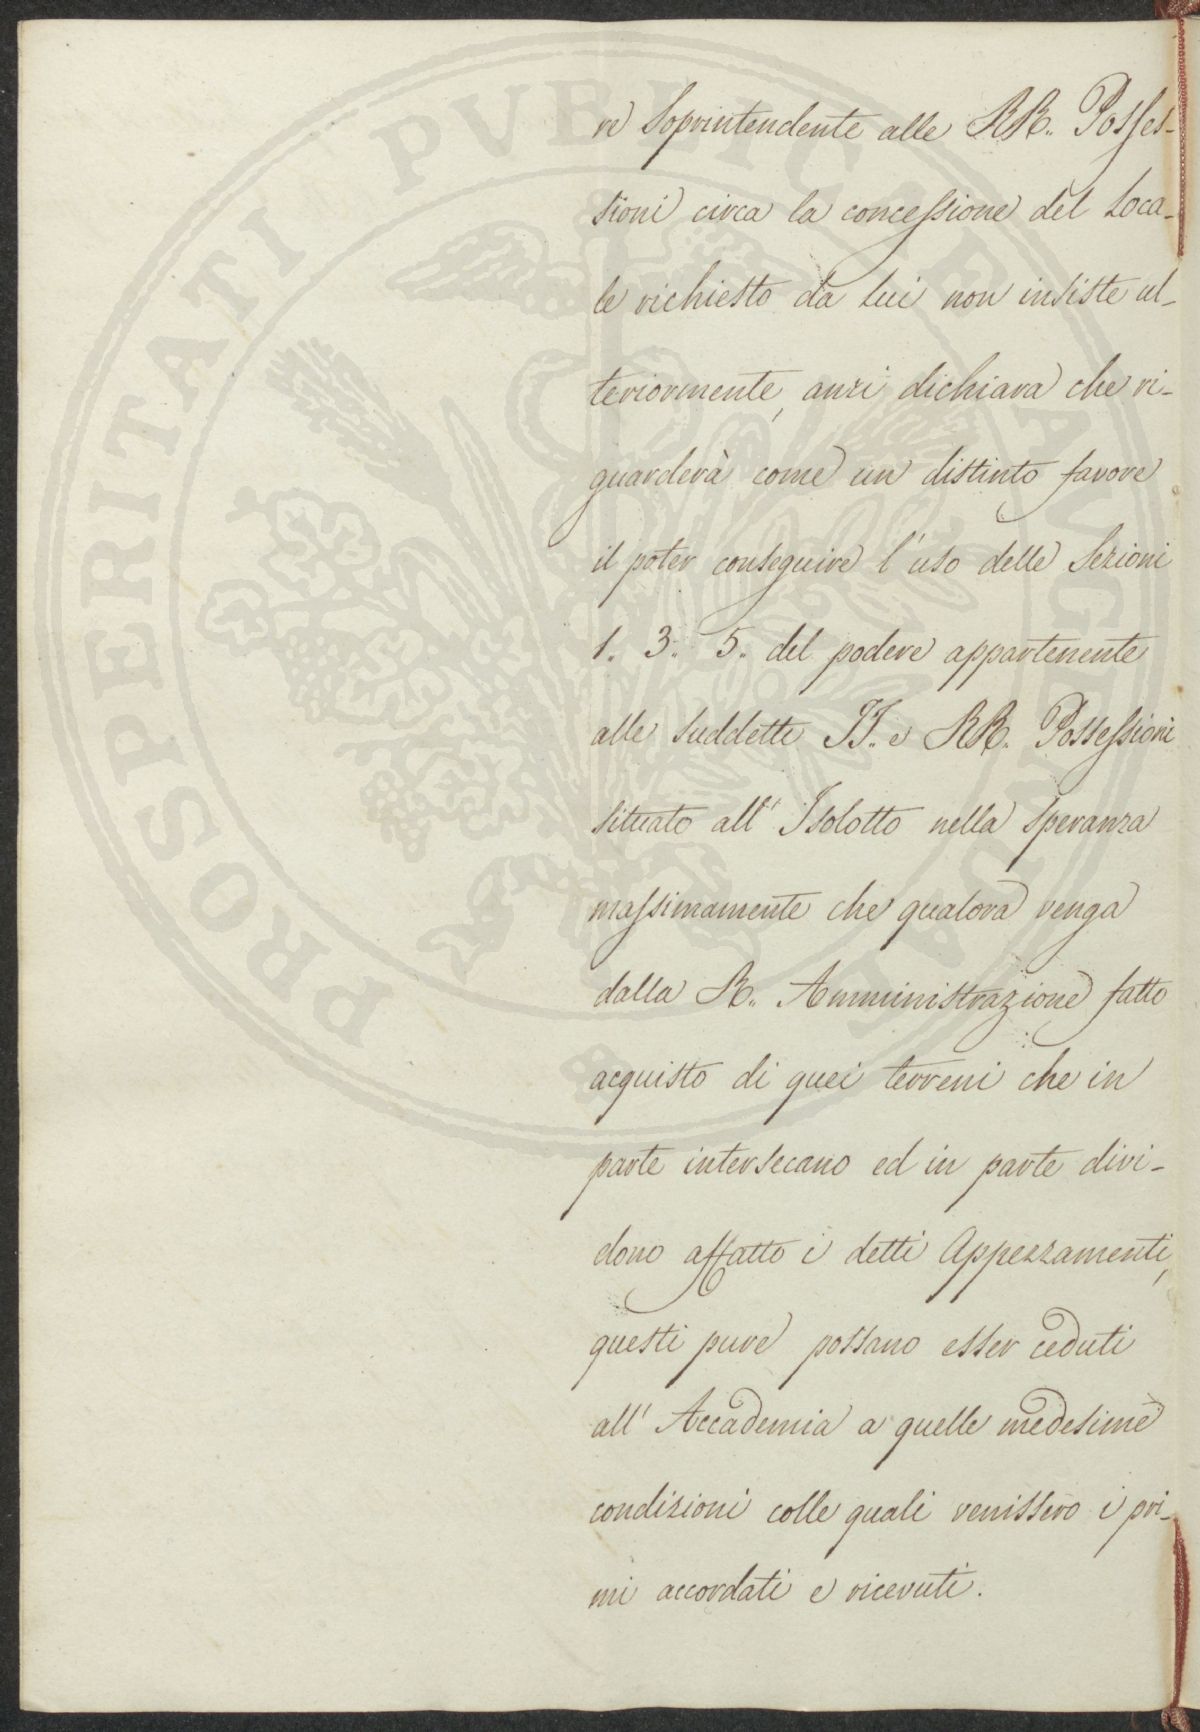 re Soprintendente alle RR. Posses-
sioni circa la concessione del Loca-
le richiesto da lui non insiste ul-
teriormente, anzi dichiara che ri-
guarderà come un distinto favore
il poter conseguire l'uso delle Sezioni
1. 3. 5. del podere appartenente
alle suddette II. e RR. Possessioni
situato all'Isolotto nella speranza
massimamente che qualora venga
dalla R. Amministrazione fatto
acquisto di quei terreni che in
parte intersecano ed in parte divi-
dono affatto i detti Appezzamenti,
questi pure possano esser ceduti
all'Accademia a quelle medesime
condizioni colle quali venissero i pri-
mi accordati e ricevuti.
PROSPERITATI PVBLICAE AVGENDAE